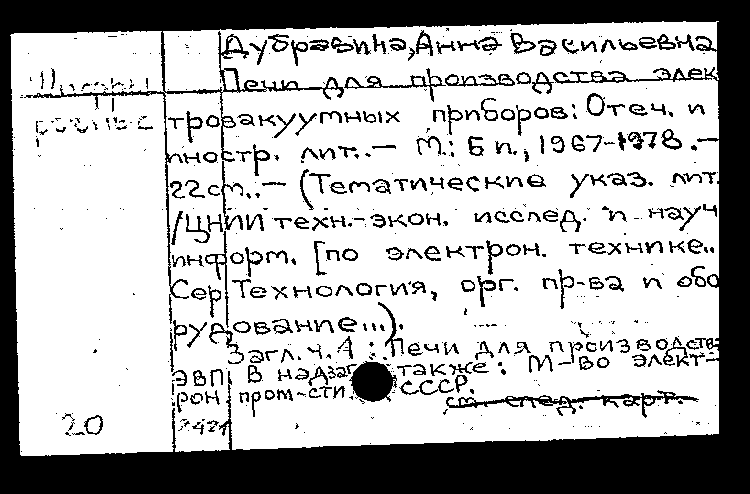 Дубравина, Анна Васильевна
Шифры
Печи для производства элек
разные
тровакуумных приборов: Отеч. и
иностр. лит.. — М.: Б и., 1967-1978. —
22 см.. — (Тематические указ. лит.
/ЦНИИ техн.-экон. исслед. и науч
информ. [по электрон. технике..
Сер Технология, орг. пр-ва и обо
рудование...).
Загл. ч. 1: Печи для производства
ЭВП. В надзаг также: М-во элект-
рон. пром-сти. СССР.
см. след. карт.
20